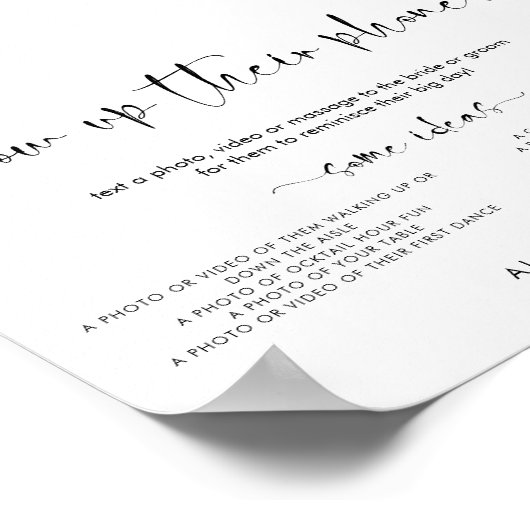 up their phone
text a photo, video or massage to the bride or groom
for them to reminisce their big day!
some ideas
A PHOTO OR VIDEO OF THEM WALKING UP OR
DOWN THE AISLE
A PHOTO OF OCKTAIL HOUR FUN
A PHOTO OF YOUR TABLE
A PHOTO OR VIDEO OF THEIR FIRST DANCE